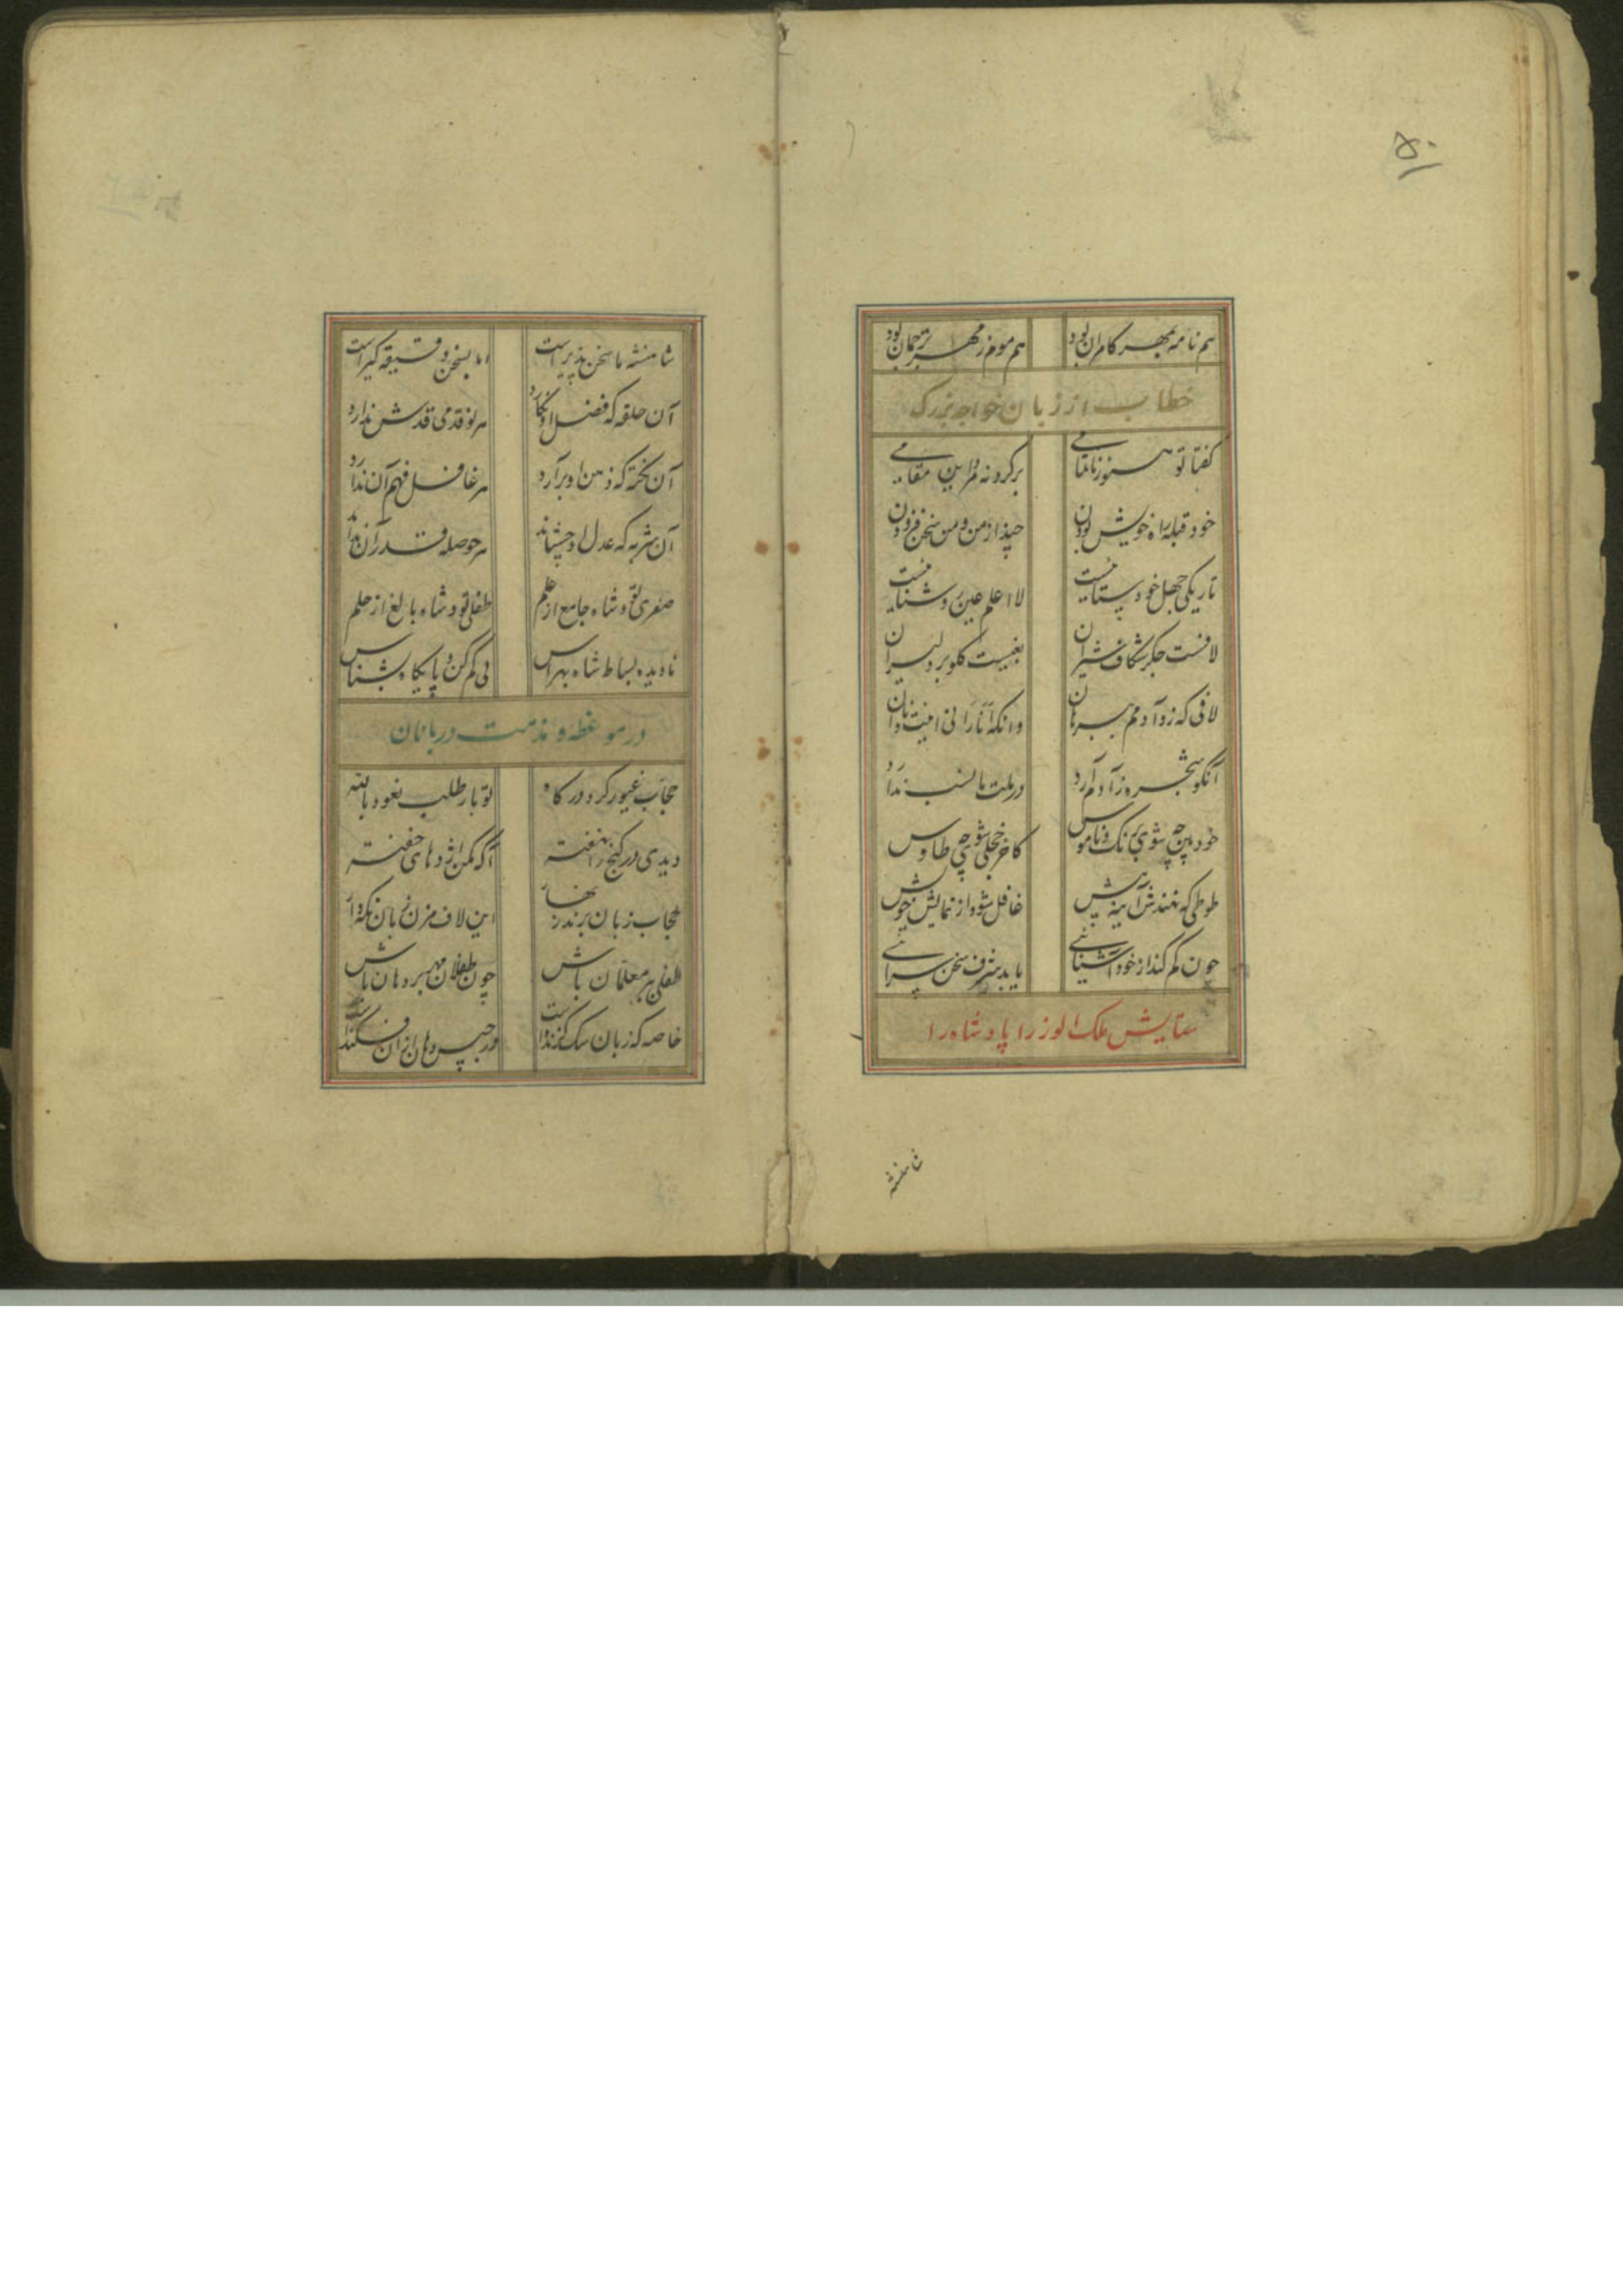 ۵۱
هم نامه بمهر کامران بود هم موم ز مهر ترجمان بود
خطاب از زبان خواجه بزرک
کفتا تو هنوز ناتمامی برکرد نه مرد این مقامی
خود قبله راه خویش بودن چند از من و من سخن فزودن
تاریکی جهل خود پرستیست لا اعلم عین روشناییست
لافست جکر شکاف شیران تیغیست کلوبر دلیران
لافی که زد آدم هم بر آن وانکه
آنکو شجره ز آدم آرد در ملت ما نسب ندارد
خود بین چه شوی برنک و ناموس کاخر خجلی شوی چو طاوس
طوطی که نهندش آینه پیش غافل شود از نمایش خویش
چون کم کند از خود آشنائی یابد شرف سخن سرائی
ستایش ملک الوزرا پادشاه را
شاهنشه
شاهنشه ما سخن پذیر است اما بسخن دقیقه کیر است
آن حلقه که فضل او نکارد هر نوقدمی قدمش ندارد
آن نکته که ذهن او برآرد هر غافل فهم آن ندارد
آن شربه که عدل او چشاند هر حوصله قدر آن نداند
صفری تو و شاه جامع از علم طفلی تو و شاه بالغ از حلم
نادیده بساط شاه بهراس پی کم کن و پایکاه بشناس
در موعظه و مذمت دربانان
حجاب غیور کرد درکاه تو بار طلب نعوذ بالله
دیدی در کنج را نهفته آکه نه از اژدهای خفته
حجاب زبان برند زنهار این لاف مزن زبان نکه دار
طفلی بر معلمان باش چون طفلان مهر بر دهان باش
خاصه که زبان سک کزنده است